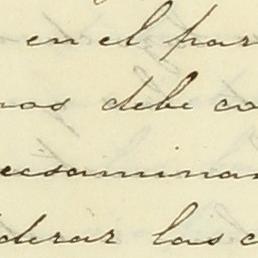 en el par
nos debe co
ecsaminar
iderar las c